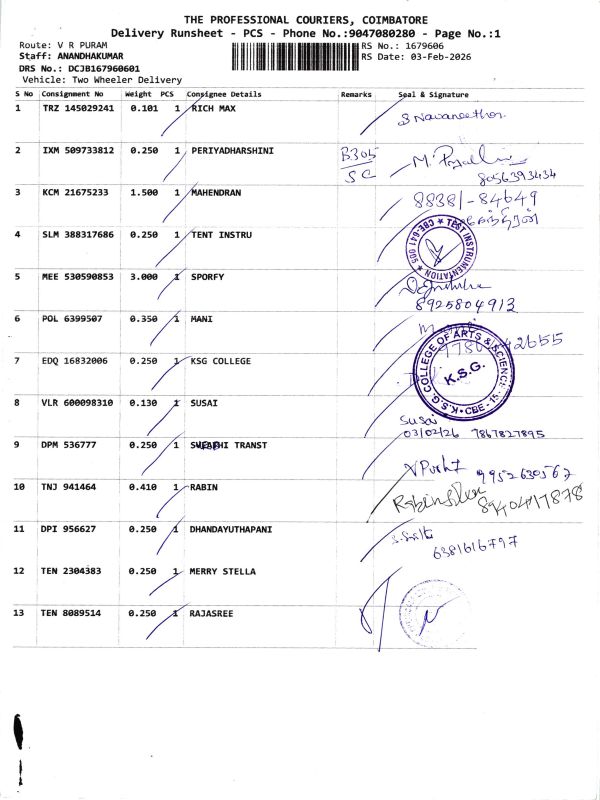 THE PROFESSIONAL COURIERS, COIMBATORE
Delivery Runsheet - PCS - Phone No.:9047080280 - Page No.:1
Route: V R PURAM
RS No.: 1679606
Staff: ANANDHAKUMAR
RS Date: 03-Feb-2026
DRS No.: DCJB167960601
Vehicle: Two Wheeler Delivery
S No Consignment No Weight PCS Consignee Details Remarks Seal & Signature
1 TRZ 145029241 0.101 1 RICH MAX
2 IXM 509733812 0.250 1 PERIYADHARSHINI B305
SC
8056393434
3 KCM 21675233 1.500 1 MAHENDRAN 88381-84649
4 SLM 388317686 0.250 1 TENT INSTRU TEST INSTRUMENTATION ★ CBE-641 006 ★
5 MEE 530590853 3.000 1 SPORFY
8925804913
6 POL 6399507 0.350 1 MANI
7 EDQ 16832006 0.250 1 KSG COLLEGE K.S.G COLLEGE OF ARTS & SCIENCE CBE - 15 K.S.G.
8 VLR 600098310 0.130 1 SUSAI Susai
03/02/26 7867827895
9 DPM 536777 0.250 1 TRANST
9952630567
10 TNJ 941464 0.410 1 RABIN 8940417878
11 DPI 956627 0.250 1 DHANDAYUTHAPANI
6381616797
12 TEN 2304383 0.250 1 MERRY STELLA
13 TEN 8089514 0.250 1 RAJASREE